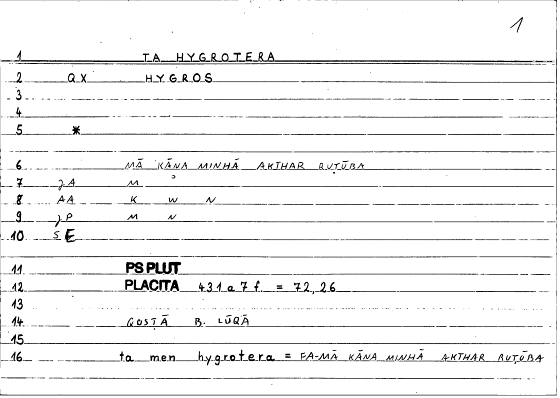 1
1 TA HYGROTERA
2 QX HYGROS
3
4
5 *
6 MĀ KĀNA MINHĀ AKTHAR RUṬŪBA
7 JA M
8 AA K W N
9 JP M N
10 SE
11 PS PLUT
12 PLACITA 431a7f. = 72,26
13
14 QOSṬĀ B. LŪQĀ
15
16 ta men hygrotera = FA-MĀ KĀNA MINHĀ AKTHAR RUṬŪBA